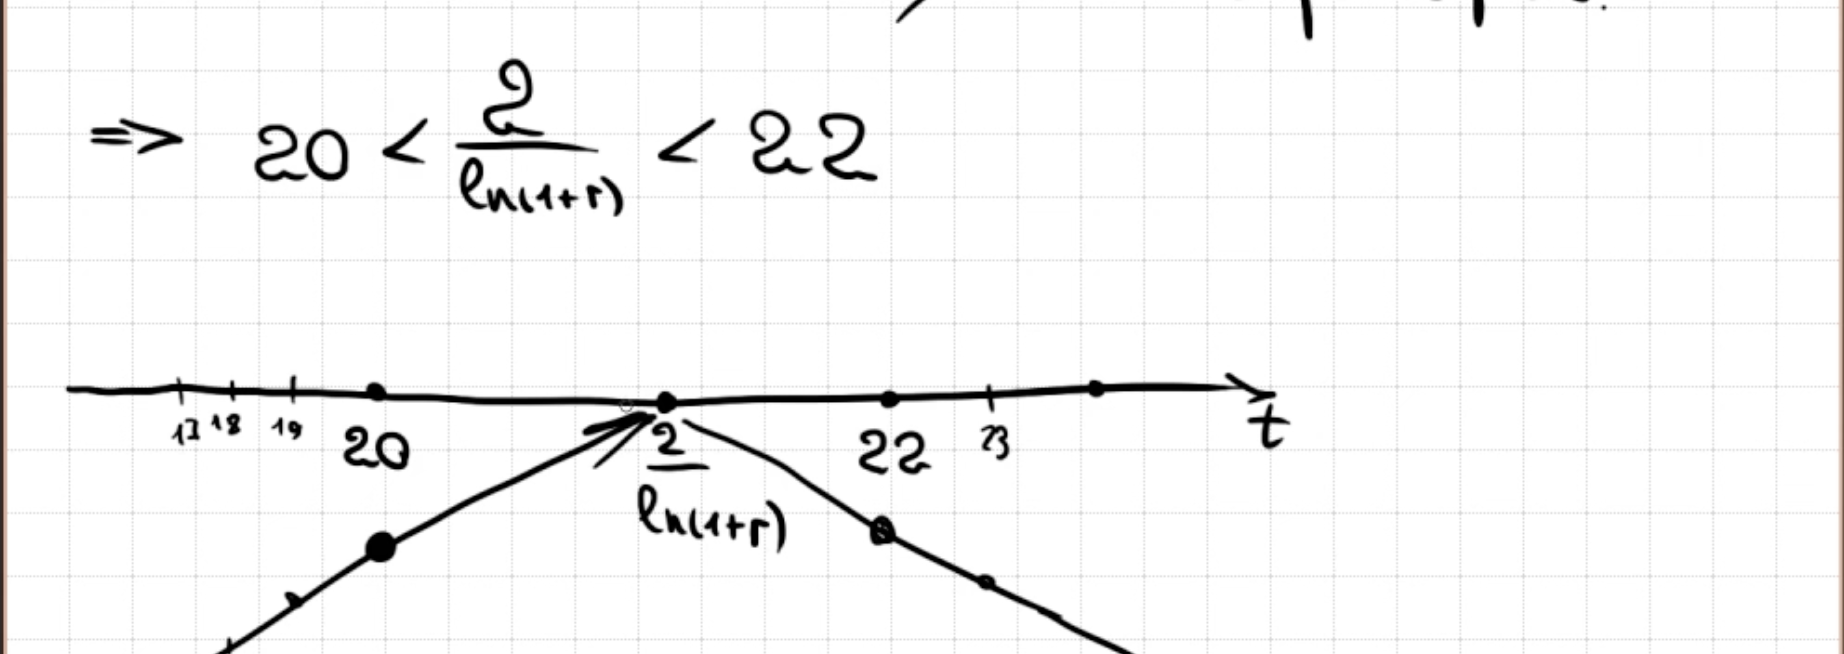 => 20 < 2/ln(1+r) < 22
17 18 19 20 2/ln(1+r) 22 23 t